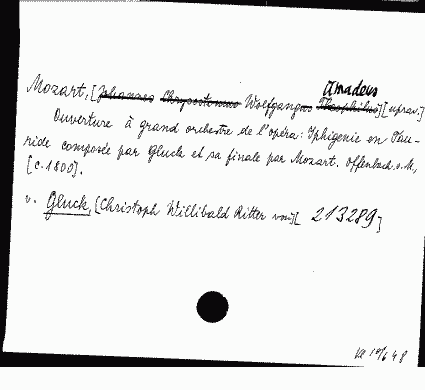 Amadeus
Mozart, [Johannes Chrysostomus Wolfgangus Theophilus] [uprav.]
Ouverture à grand orchestre de l'opéra: Iphigenie en Tau-
ride composée par Gluck et sa finale par Mozart. Offenbach a. M.,
[c. 1800].
v. Gluck, [Christoph Willibald Ritter von] [213289]